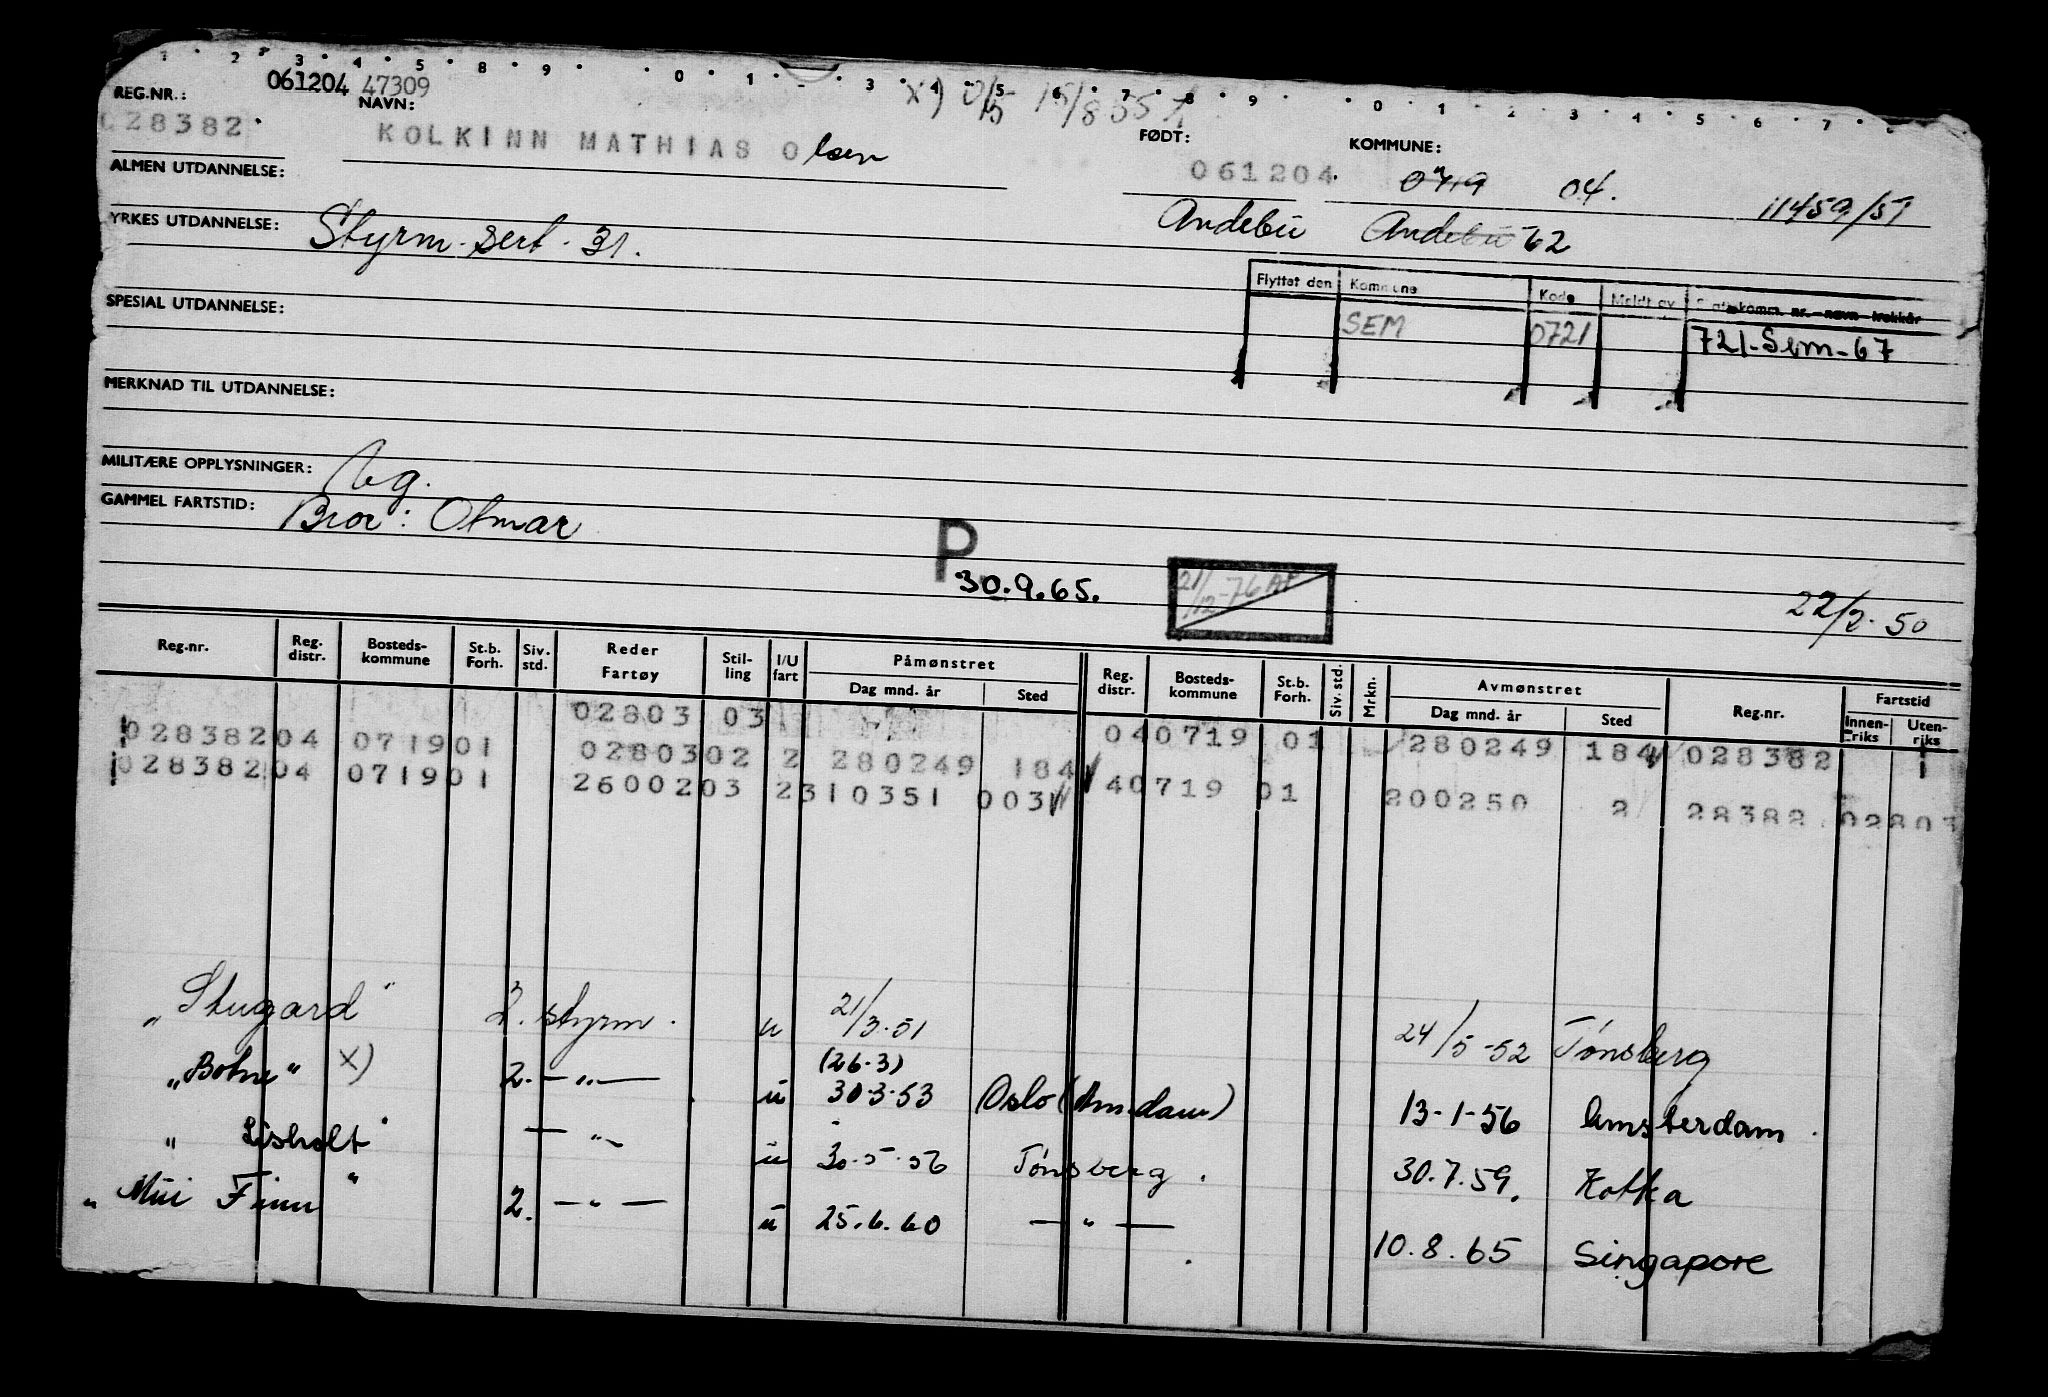 1 2 3 4 5 8 9 0 1 - 3 4 5 6 7 8 9 0 1 2 3 4 5 6 7
REG.NR.: 061204 47309
NAVN: FØDT: KOMMUNE:
028382. KOLKINN MATHIAS Olsen 061204. 0719 04. 11459/51
ALMEN UTDANNELSE:
YRKES UTDANNELSE: Styrm. sert. 31. Andebu Andebu 62
Flyttet den Kommune Kode Meldt av
SPESIAL UTDANNELSE: SEM 0721 721-Sem-67
MERKNAD TIL UTDANNELSE:
MILITÆRE OPPLYSNINGER:
GAMMEL FARTSTID: Bror: Otmar
P.
30.9.65. 21/12-76 22/2.50
Reg.nr. Reg. distr. Bosteds-kommune St.b. Forh. Siv. std. Reder Fartøy Stil-ling I/U fart Påmønstret Dag mnd. år Sted Reg. distr. Bosteds-kommune St.b. Forh. Siv. std. Mrkn. Avmønstret Dag mnd. år Sted Reg.nr. Fartstid Innen-riks Uten-riks
02803 03
028382 04 0719 01 02803 02 2 280249 184 04 0719 01 280249 184 028382
028382 04 0719 01 26002 03 2 310351 003 40719 01 200250 2 28382 02803
"Stugard" 2. styrm. u 21/3.51 24/5-52 Tønsberg
X) 2. -"- (26.3)
u 30.3.53 Oslo (Am.dam) 13-1-56 Amsterdam.
-"- u 30.5.56 Tønsberg. 30.7.59. Kotka
" Finn " 2. -"- u 25.6.60 -"- 10.8.65 Singapore